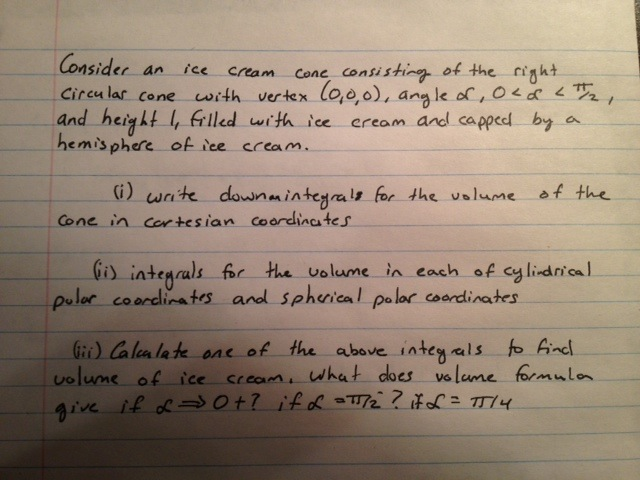 Consider an ice cream cone consisting of the right
circular cone with vertex (0,0,0), angle α, 0<α<π/2,
and height 1, filled with ice cream and capped by a
hemisphere of ice cream.
(i) write down an integrals for the volume of the
cone in cartesian coordinates
(ii) integrals for the volume in each of cylindrical
polar coordinates and spherical polar coordinates
(iii) Calculate one of the above integrals to find
volume of ice cream. What does volume formula
give if α ⇒ 0+? if α = π/2⁻? if α = π/4